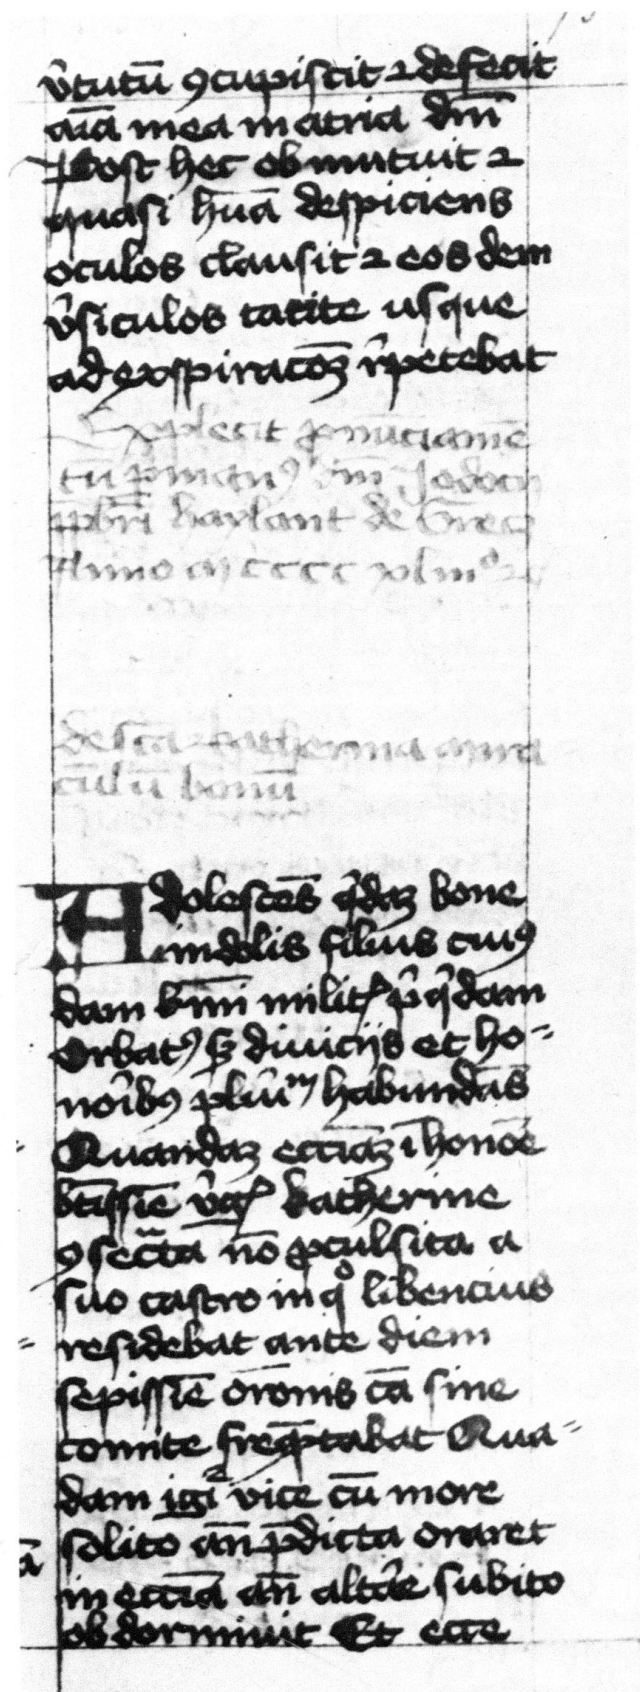 v̾tutū ꝯcupiscit ⁊ defecit
aīa mea in atria dm̄
Post hec obmutuit ⁊
quasi hūa despiciens
oculos clausit ⁊ eosdem
v̾siculos tacite usque
ad expiracōꝫ r̾petebat
Explicit ꝓnūciamē
tū ꝑ manꝰ dm̄ Jodoci
p̄pbr̄i haylant de
Anno m cccc xlmº
de sc̄a katherina mira
culū bonū
Adolescēs q̇daꝫ bone
indolis filius cuiꝰ
dam milit̾ dam
Orbatꝰ sꝫ diviciis et ho=
nōibꝰ habundās
Quandaꝫ ecc̄iaꝫ ī honōe
bt̄issīe v̾gꝭ katherine
ꝯsec̄ta nō ꝓcul sita a
suo castro in qº libencius
residebat ante diem
sepissīe or̄onis cā sine
comite freq̄ntabat Qua=
dam igi² vice cū more
solito an̄ p̄dicta oraret
in ecc̄ia an̄ altāe subito
obdormivit Et ecce